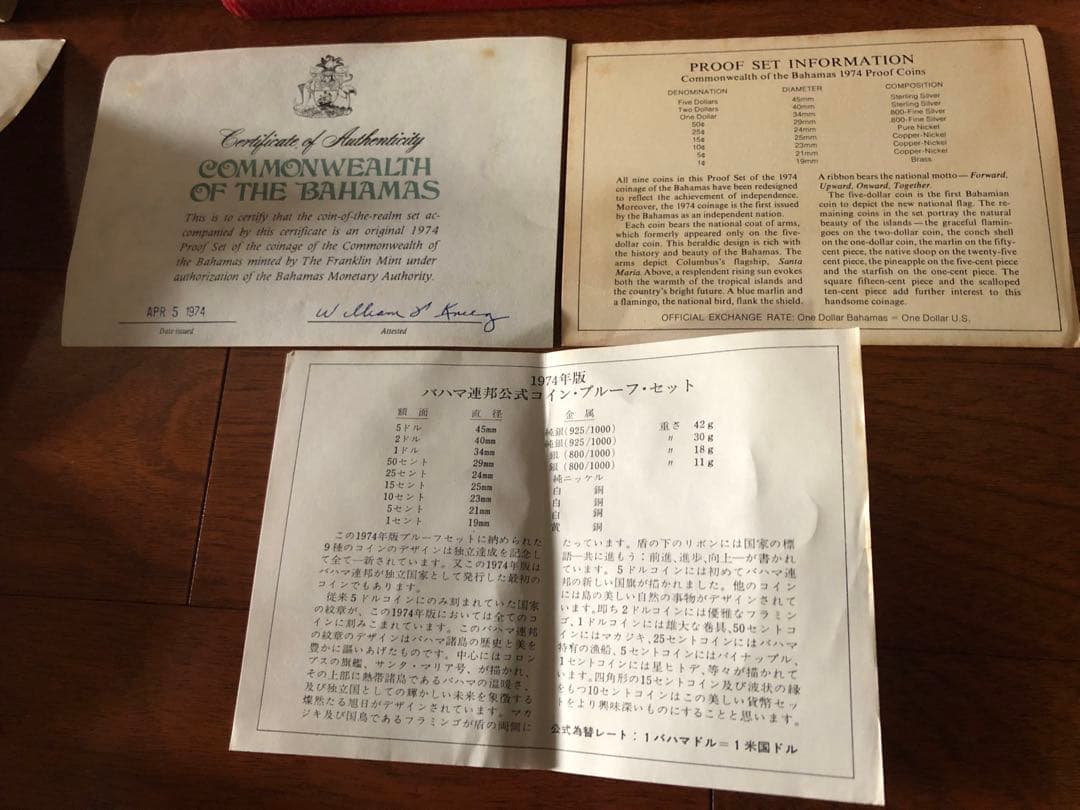 Certificate of Authenticity
COMMONWEALTH
OF THE BAHAMAS
This is to certify that the coin-of-the-realm set ac-
companied by this certificate is an original 1974
Proof Set of the coinage of the Commonwealth of
the Bahamas minted by The Franklin Mint under
authorization of the Bahamas Monetary Authority.
APR 5 1974
Date issued
Attested
PROOF SET INFORMATION
Commonwealth of the Bahamas 1974 Proof Coins
DENOMINATION DIAMETER COMPOSITION
Five Dollars 45mm Sterling Silver
Two Dollars 40mm Sterling Silver
One Dollar 34mm .800-Fine Silver
50¢ 29mm .800-Fine Silver
25¢ 24mm Pure Nickel
15¢ 25mm Copper-Nickel
10¢ 23mm Copper-Nickel
5¢ 21mm Copper-Nickel
1¢ 19mm Brass
All nine coins in this Proof Set of the 1974
coinage of the Bahamas have been redesigned
to reflect the achievement of independence.
Moreover, the 1974 coinage is the first issued
by the Bahamas as an independent nation.
Each coin bears the national coat of arms,
which formerly appeared only on the five-
dollar coin. This heraldic design is rich with
the history and beauty of the Bahamas. The
arms depict Columbus's flagship, Santa
Maria. Above, a resplendent rising sun evokes
both the warmth of the tropical islands and
the country's bright future. A blue marlin and
a flamingo, the national bird, flank the shield.
A ribbon bears the national motto — Forward,
Upward, Onward, Together.
The five-dollar coin is the first Bahamian
coin to depict the new national flag. The re-
maining coins in the set portray the natural
beauty of the islands — the graceful flamin-
goes on the two-dollar coin, the conch shell
on the one-dollar coin, the marlin on the fifty-
cent piece, the native sloop on the twenty-five
cent piece, the pineapple on the five-cent piece
and the starfish on the one-cent piece. The
square fifteen-cent piece and the scalloped
ten-cent piece add further interest to this
handsome coinage.
OFFICIAL EXCHANGE RATE: One Dollar Bahamas = One Dollar U.S.
1974年版
バハマ連邦公式コイン・プルーフ・セット
額面 直径 金属
5ドル 45mm 純銀(925/1000) 重さ 42g
2ドル 40mm 純銀(925/1000) 〃 30g
1ドル 34mm 銀(800/1000) 〃 18g
50セント 29mm 銀(800/1000) 〃 11g
25セント 24mm 純ニッケル
15セント 25mm 白銅
10セント 23mm 白銅
5セント 21mm 白銅
1セント 19mm 黄銅
この1974年版プルーフセットに納められた
9種のコインのデザインは独立達成を記念し
て全て一新されています。又この1974年版は
バハマ連邦が独立国家として発行した最初の
コインでもあります。
従来5ドルコインにのみ刻まれていた国家
の紋章が、この1974年版においては全てのコ
インに刻みこまれています。このバハマ連邦
の紋章のデザインはバハマ諸島の歴史と美を
豊かに謳いあげたものです。中心にはコロン
ブスの旗艦、サンタ・マリア号、が描かれ、
その上部に熱帯諸島であるバハマの温暖さ、
及び独立国としての輝かしい未来を象徴する
燦然たる旭日がデザインされています。マカ
ジキ及び国鳥であるフラミンゴが盾の両側に
たっています。盾の下のリボンには国家の標
語―共に進もう：前進、進歩、向上―が書かれ
ています。5ドルコインには初めてバハマ連
邦の新しい国旗が描かれました。他のコイン
には島の美しい自然の事物がデザインされて
います。即ち2ドルコインには優雅なフラミン
ゴ、1ドルコインには雄大な巻貝、50セントコ
インにはマカジキ、25セントコインにはバハマ
特有の漁船、5セントコインにはパイナップル、
1セントコインには星ヒトデ、等々が描かれて
います。四角形の15セントコイン及び波状の縁
をもつ10セントコインはこの美しい貨幣セッ
トをより興味深いものにすることと思います。
公式為替レート：1バハマドル＝1米国ドル